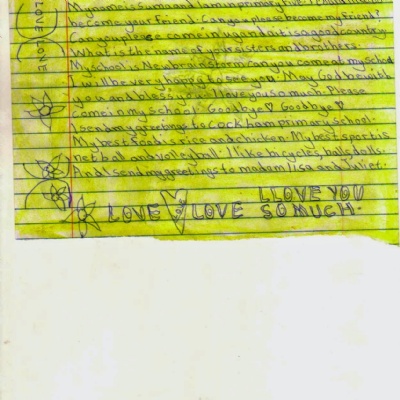 My name is am in primary
become your friend. Can you please become my friend?
Can you please come in uganda it is a good country.
What is the name of your sisters and brothers.
My school is school can you come at my school
I will be very happy to see you. May God be with
you and bless you. I love you so much. Please
come in my school. Goodbye ♡ Goodbye ♡
I send my greetings to Cockham primary school.
My best food is rice and chicken. My best sport is
net ball and volleyball. I like bicycles, balls, dolls.
And I send my greetings to madam Lisa and Juliet.
LOVE LOVE
LOVE LOVE I LOVE YOU
SO MUCH.